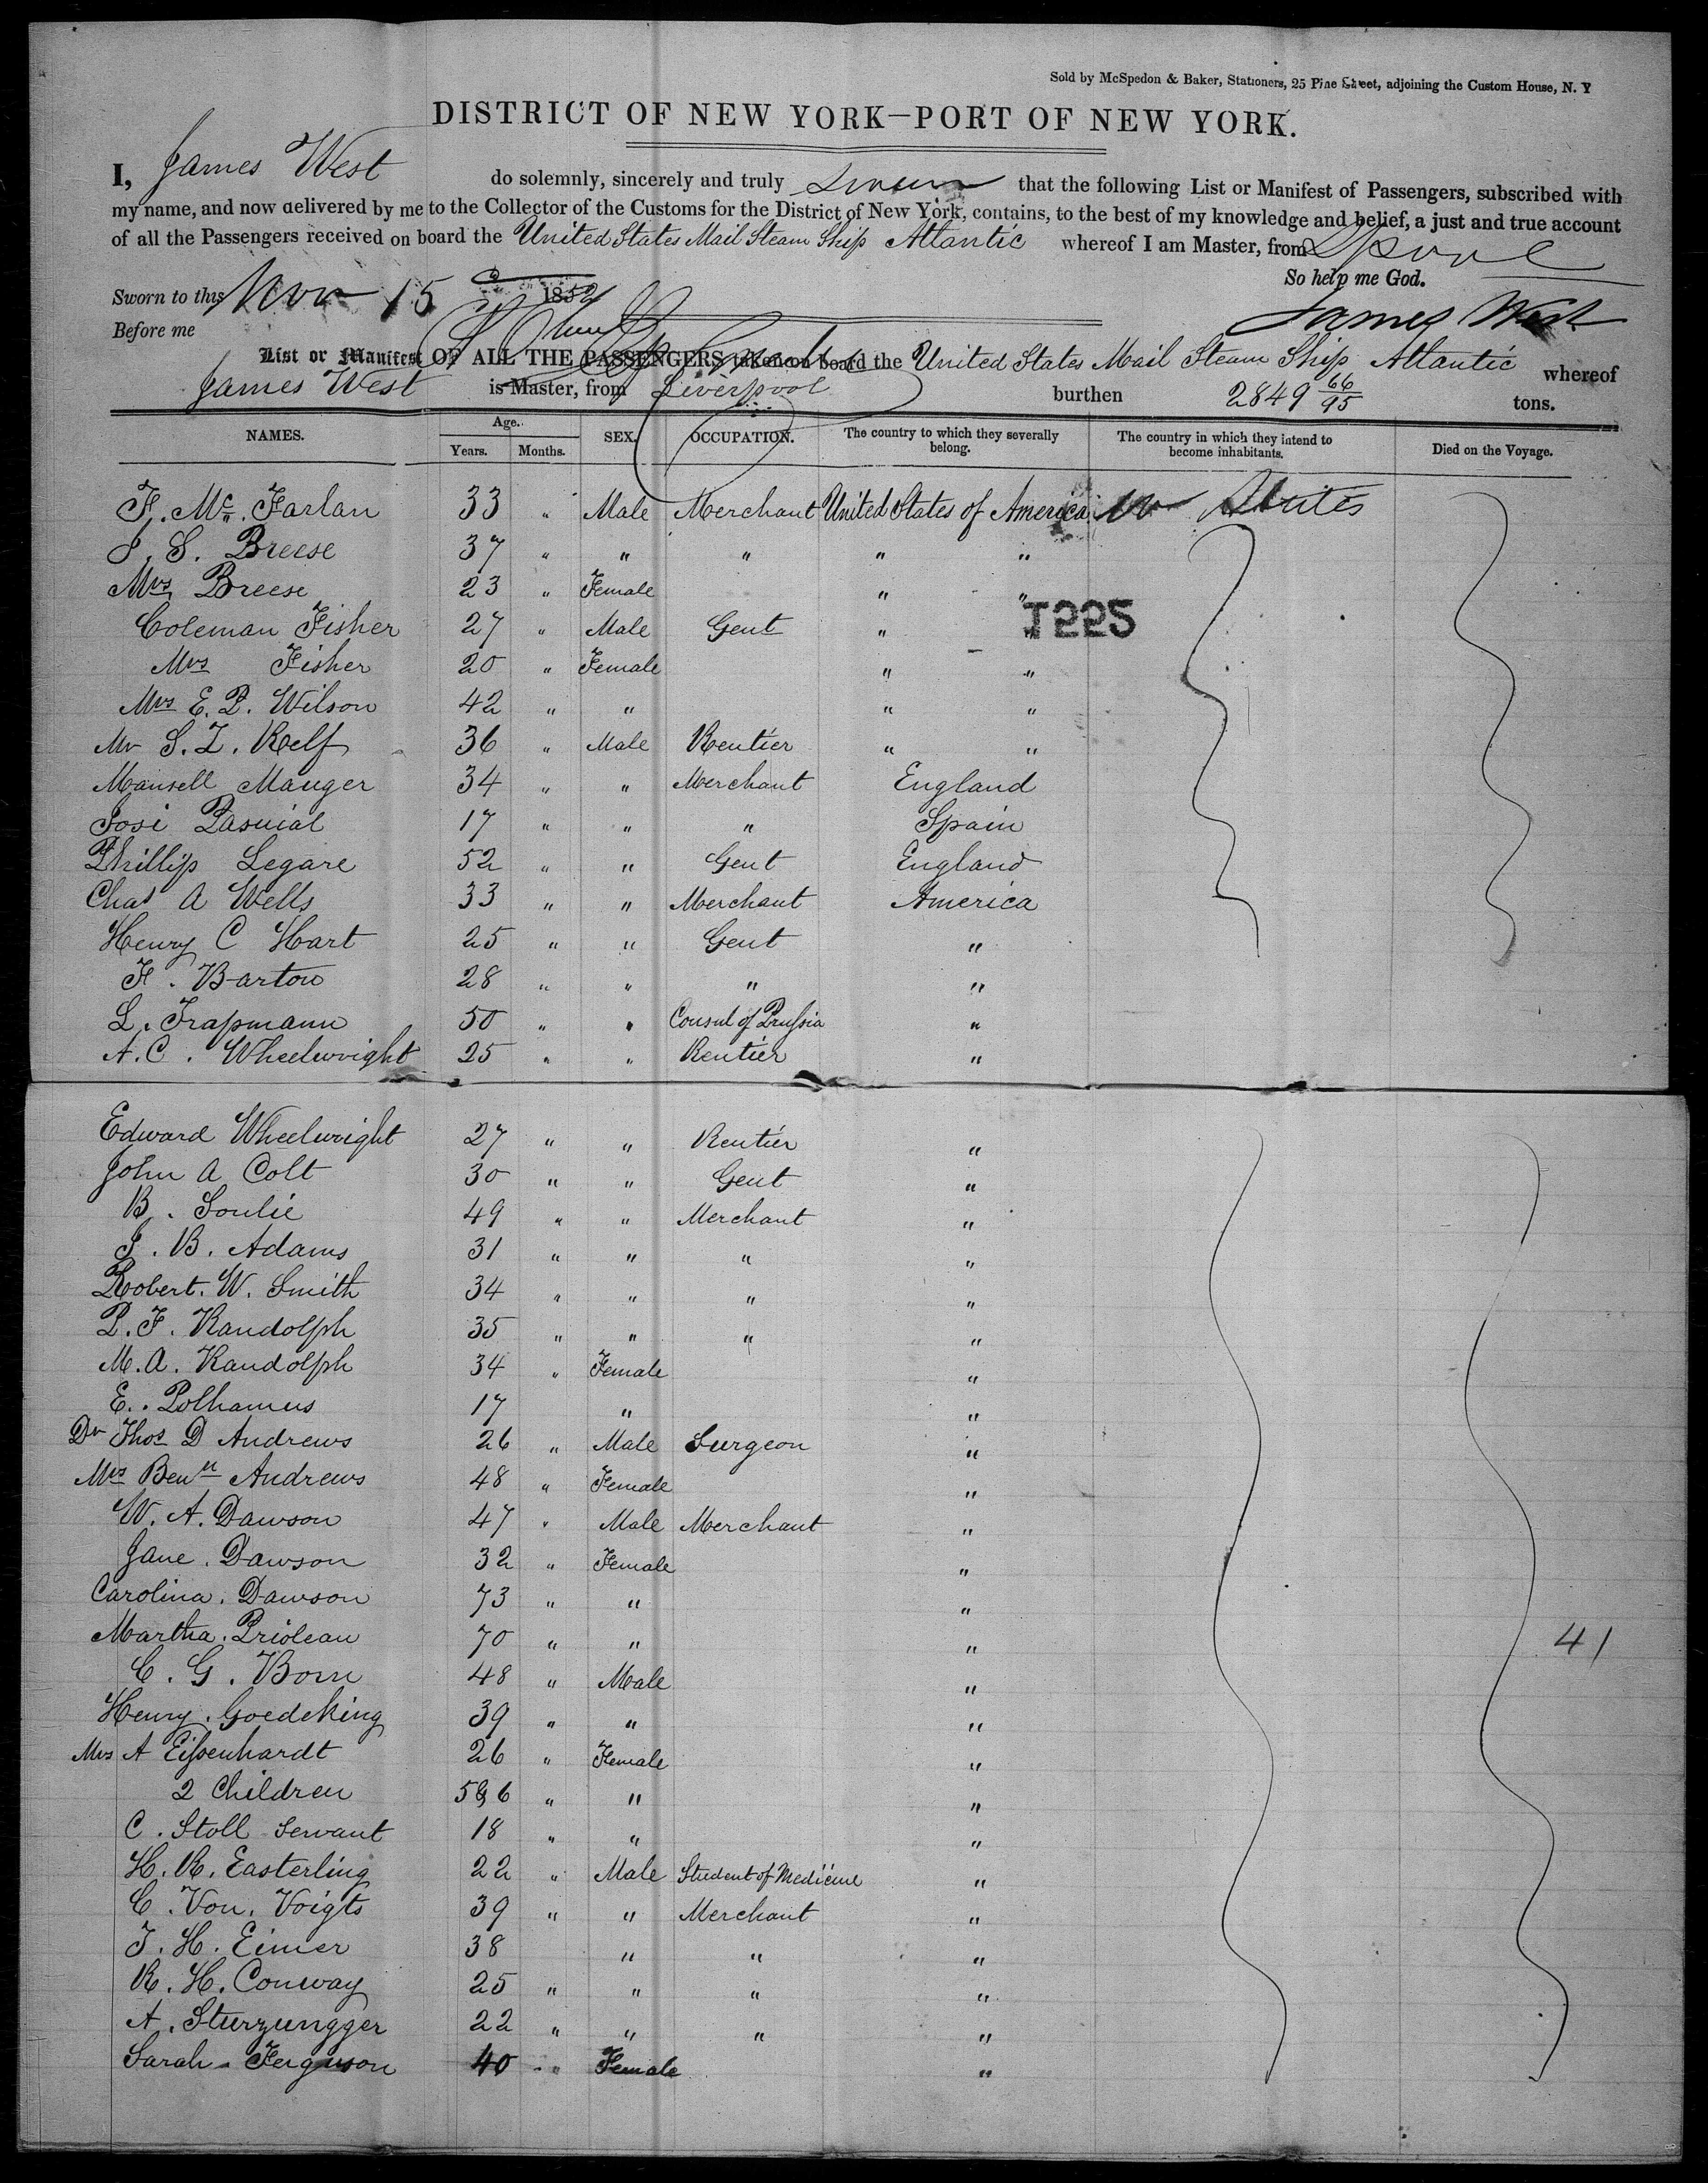 Sold by McSpedon & Baker, Stationers, 25 Pine Street, adjoining the Custom House, N. Y
DISTRICT OF NEW YORK—PORT OF NEW YORK.
I, James West do solemnly, sincerely and truly swear that the following List or Manifest of Passengers, subscribed with
my name, and now delivered by me to the Collector of the Customs for the District of New York, contains, to the best of my knowledge and belief, a just and true account
of all the Passengers received on board the United States Mail Steam Ship Atlantic whereof I am Master, from Lpool
So help me God.
Sworn to this Nov 15 1852
James West
Before me
List or Manifest OF ALL THE PASSENGERS taken on board the United States Mail Steam Ship Atlantic whereof
James West is Master, from Liverpool burthen 2849 66/95 tons.
NAMES. Age. Years. Months. SEX. OCCUPATION. The country to which they severally belong. The country in which they intend to become inhabitants. Died on the Voyage.
F. Mc. Farlan 33 " Male Merchant United States of America U States
J. S. Breese 37 " " " " "
Mrs Breese 23 " Female " "
Coleman Fisher 27 " Male Gent " "
T225
Mrs Fisher 20 " Female " "
Mrs E. P. Wilson 42 " " " "
Mr S. Z. Relf 36 " Male Rentier " "
Mansell Mauger 34 " " Merchant England
Josi Pasuial 17 " " " Spain
Phillip Legare 52 " " Gent England
Chas A Wells 33 " " Merchant America
Henry C Hart 25 " " Gent "
F. Barton 28 " " " "
L. Trapmann 50 " " Consul of Prussia "
A. C. Wheelwright 25 " " Rentier "
Edward Wheelwright 27 " " Rentier "
John A Colt 30 " " Gent "
B. Soulie 49 " " Merchant "
J. B. Adams 31 " " " "
Robert. W. Smith 34 " " " "
P. F. Randolph 35 " " " "
M. A. Randolph 34 " Female "
E. Polhamus 17 " "
Dr Thos D Andrews 26 " Male Surgeon "
Mrs Benn Andrews 48 " Female "
W. A. Dawson 47 " Male Merchant "
Jane. Dawson 32 " Female "
Carolina. Dawson 73 " " "
Martha. Prioleau 70 " " " 41
C. G. Born 48 " Male "
Henry. Goedeking 39 " " "
Mrs A Eissenhardt 26 " Female "
2 Children 5 & 6 " " "
C. Stoll Servant 18 " " "
H. R. Easterling 22 " Male Student of Medicine "
C. Von. Voigts 39 " " Merchant "
T. H. Eimer 38 " " "
R. H. Conway 25 " " " "
A. Sturzungger 22 " " " "
Sarah Ferguson 40 " Female "